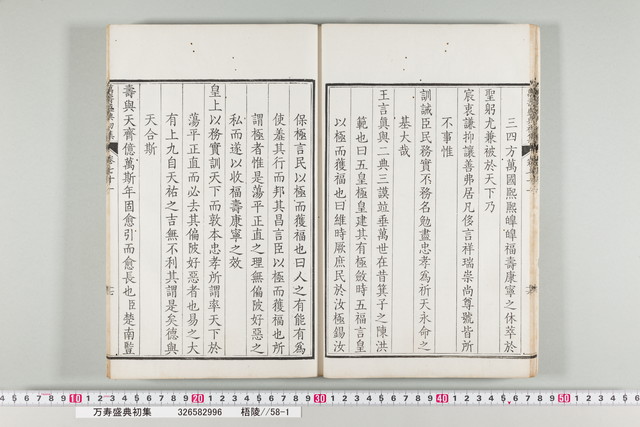 三四方萬國熙熙皡皡福壽康寧之休萃於
聖躬尤兼被於天下乃
宸衷謙抑讓善弗居凡侈言祥瑞崇尚尊號皆所
不事惟
訓誡臣民務實不務名勉盡忠孝為祈天永命之
基大哉
王言真與二典三謨竝垂萬世在昔箕子之陳洪
範也曰五皇極皇建其有極斂時五福言皇
以極而獲福也曰維時厥庶民於汝極錫汝
保極言民以極而獲福也曰人之有能有為
使羞其行而邦其昌言臣以極而獲福也所
謂極者惟是蕩平正直之理無偏陂好惡之
私而遂以收福壽康寧之效
皇上以務實訓天下而敦本忠孝所謂率天下於
蕩平正直而必去其偏陂好惡者也易之大
有上九自天祐之吉無不利其謂是矣德與
天合斯
壽與天齊億萬斯年固愈引而愈長也臣楚南監
10 20 30 40 50
万寿盛典初集 326582996 梧陵//58-1